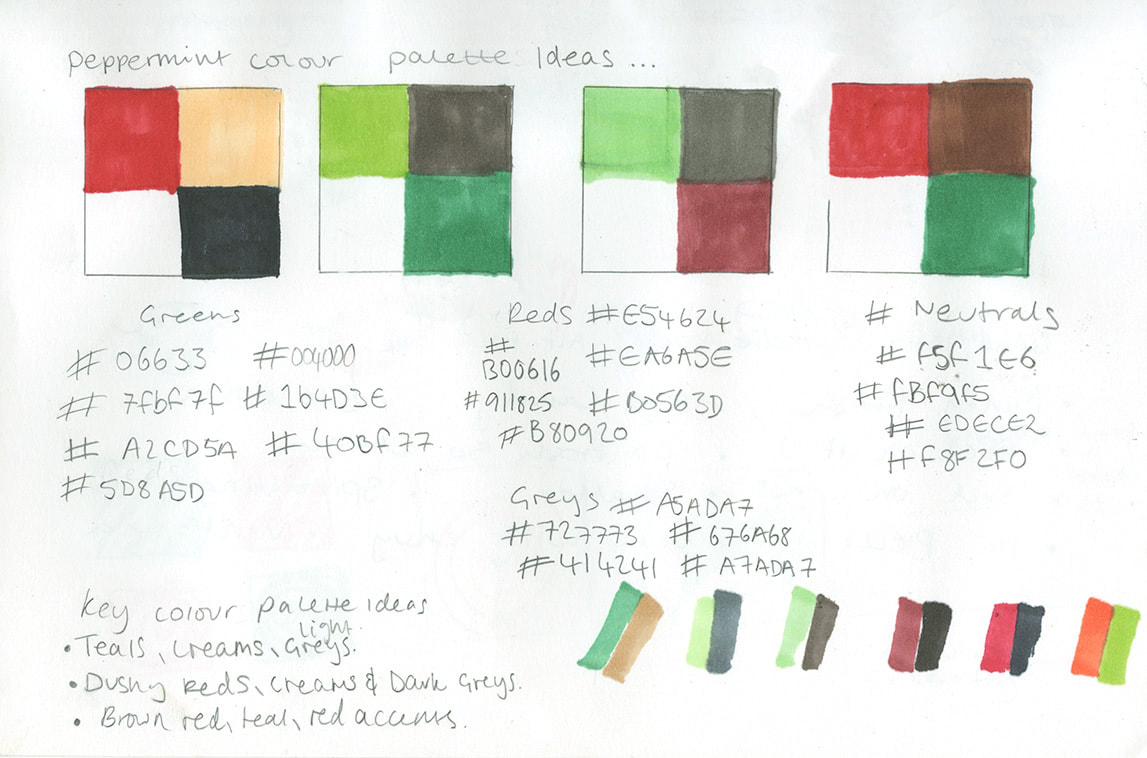 Peppermint colour palette Ideas ...
Greens
# 06633 #004000
# 7fbf7f # 1b4D3E
# A2CD5A # 40Bf77
# 5D8A5D
Reds #E54624
# B00616 #EA6A5E
#911825 #B0563D
#B80920
Greys # A5ADA7
#727773 #676A68
#414241 # A7ADA7
# Neutrals
# f5f1E6
# fBf9f5
# EDECE2
# f8F2F0
Key colour palette ideas
• Teals, creams, light Greys.
• Dushy Reds, creams & Dark Greys.
• Brown red, teal, red accents.